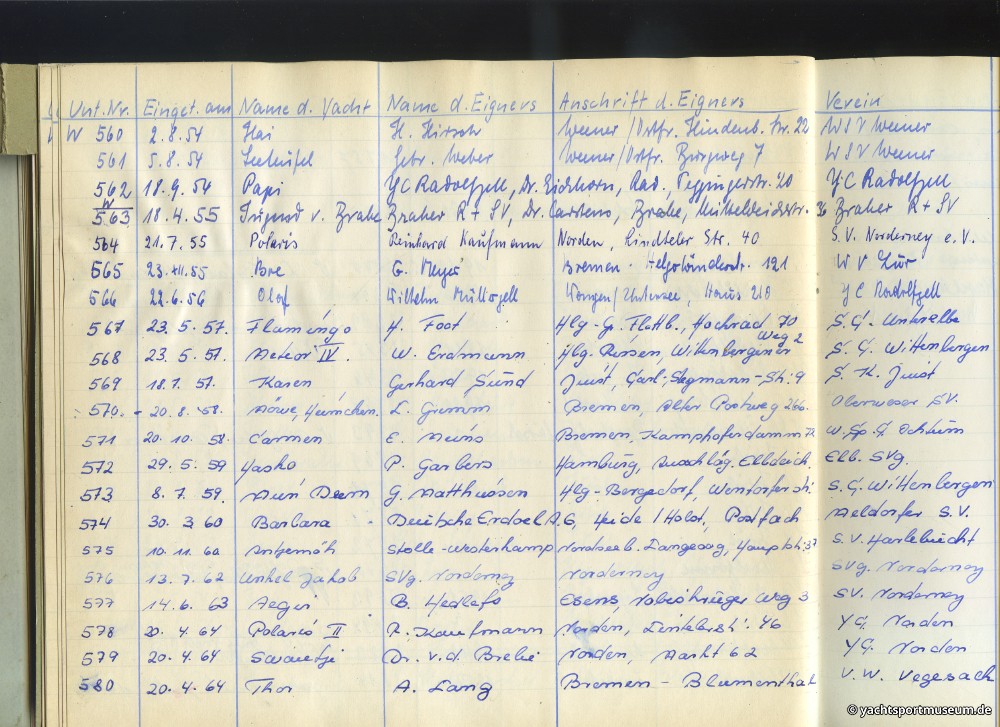 Unt. Nr. Einget. am Name d. Yacht Name d. Eigners Anschrift d. Eigners Verein
W 560 2.8.54 Hai H. Hirsch Weener/Ostfr. Hindenb. Str. 22 WSV Weener
561 5.8.54 Seeteufel Gebr. Weber Weener/Ostfr. Burgweg 7 WSV Weener
562 18.9.54 Papi YC Radolfzell, Dr. Eichhorn, Rad., 20 YC Radolfzell
W
563 18.4.55 v. Brake Braker R + SV, Dr. Carstens, Brake, 36 Braker R + SV
564 21.7.55 Polaris Reinhard Kaufmann Norden, Lindteler Str. 40 S.V. Norderney e.V.
565 23.XII.55 Bre G. Meyer Bremen - Helgoländerstr. 121 WV
566 22.6.56 Olaf Wilhelm Wangen/Untersee, Haus 210 YC Radolfzell
567 23.5.57. Flamingo H. Foot Hbg - Gr. Flottb., Hochrad 70 S.G. Unterelbe
Weg 2
568 23.5.57. Meteor IV. W. Erdmann Hbg. Rissen, Wittenbergener S.G. Wittenbergen
569 18.7.57. Karen Gerhard Juist, Carl-Stegmann-Str. 9 S.K. Juist
570 - 20.8.58. Möwe, Heinchen. L. Grimm Bremen, Alter Postweg 266. Oberweser SV.
571 20.10.58. Carmen E. Meins Bremen, Kamphoferdamm W.Sp.G Ochtum
572 29.5.59 Hasko P. Garbers Hamburg, Elbdeich. Elb. SVg.
573 8.7.59. Deern G. Matthiesen Hbg - Bergedorf, Wentorferstr. S.G. Wittenbergen
574 30.3.60 Barbara Deutsche Erdoel A.G, Heide/Holst., Postfach Meldorfer S.V.
575 10.11.60 Stolle-Westerkamp Nordseeb. Langeoog, Hauptstr. 37 S.V. Harlebucht
576 13.7.62 Unkel Jakob SVg. Norderney Norderney SVg. Norderney
577 14.6.63 Aegir B. Hedlefs Esens, Weg 3 SV. Norderney
578 20.4.64 Polaris II R. Kaufmann Norden, Str. 46 YC. Norden
579 20.4.64 Swaantje Dr. v.d. Norden, Markt 62 YC. Norden
580 20.4.64 Thor A. Lang Bremen - Blumenthal V.W. Vegesack
© yachtsportmuseum.de